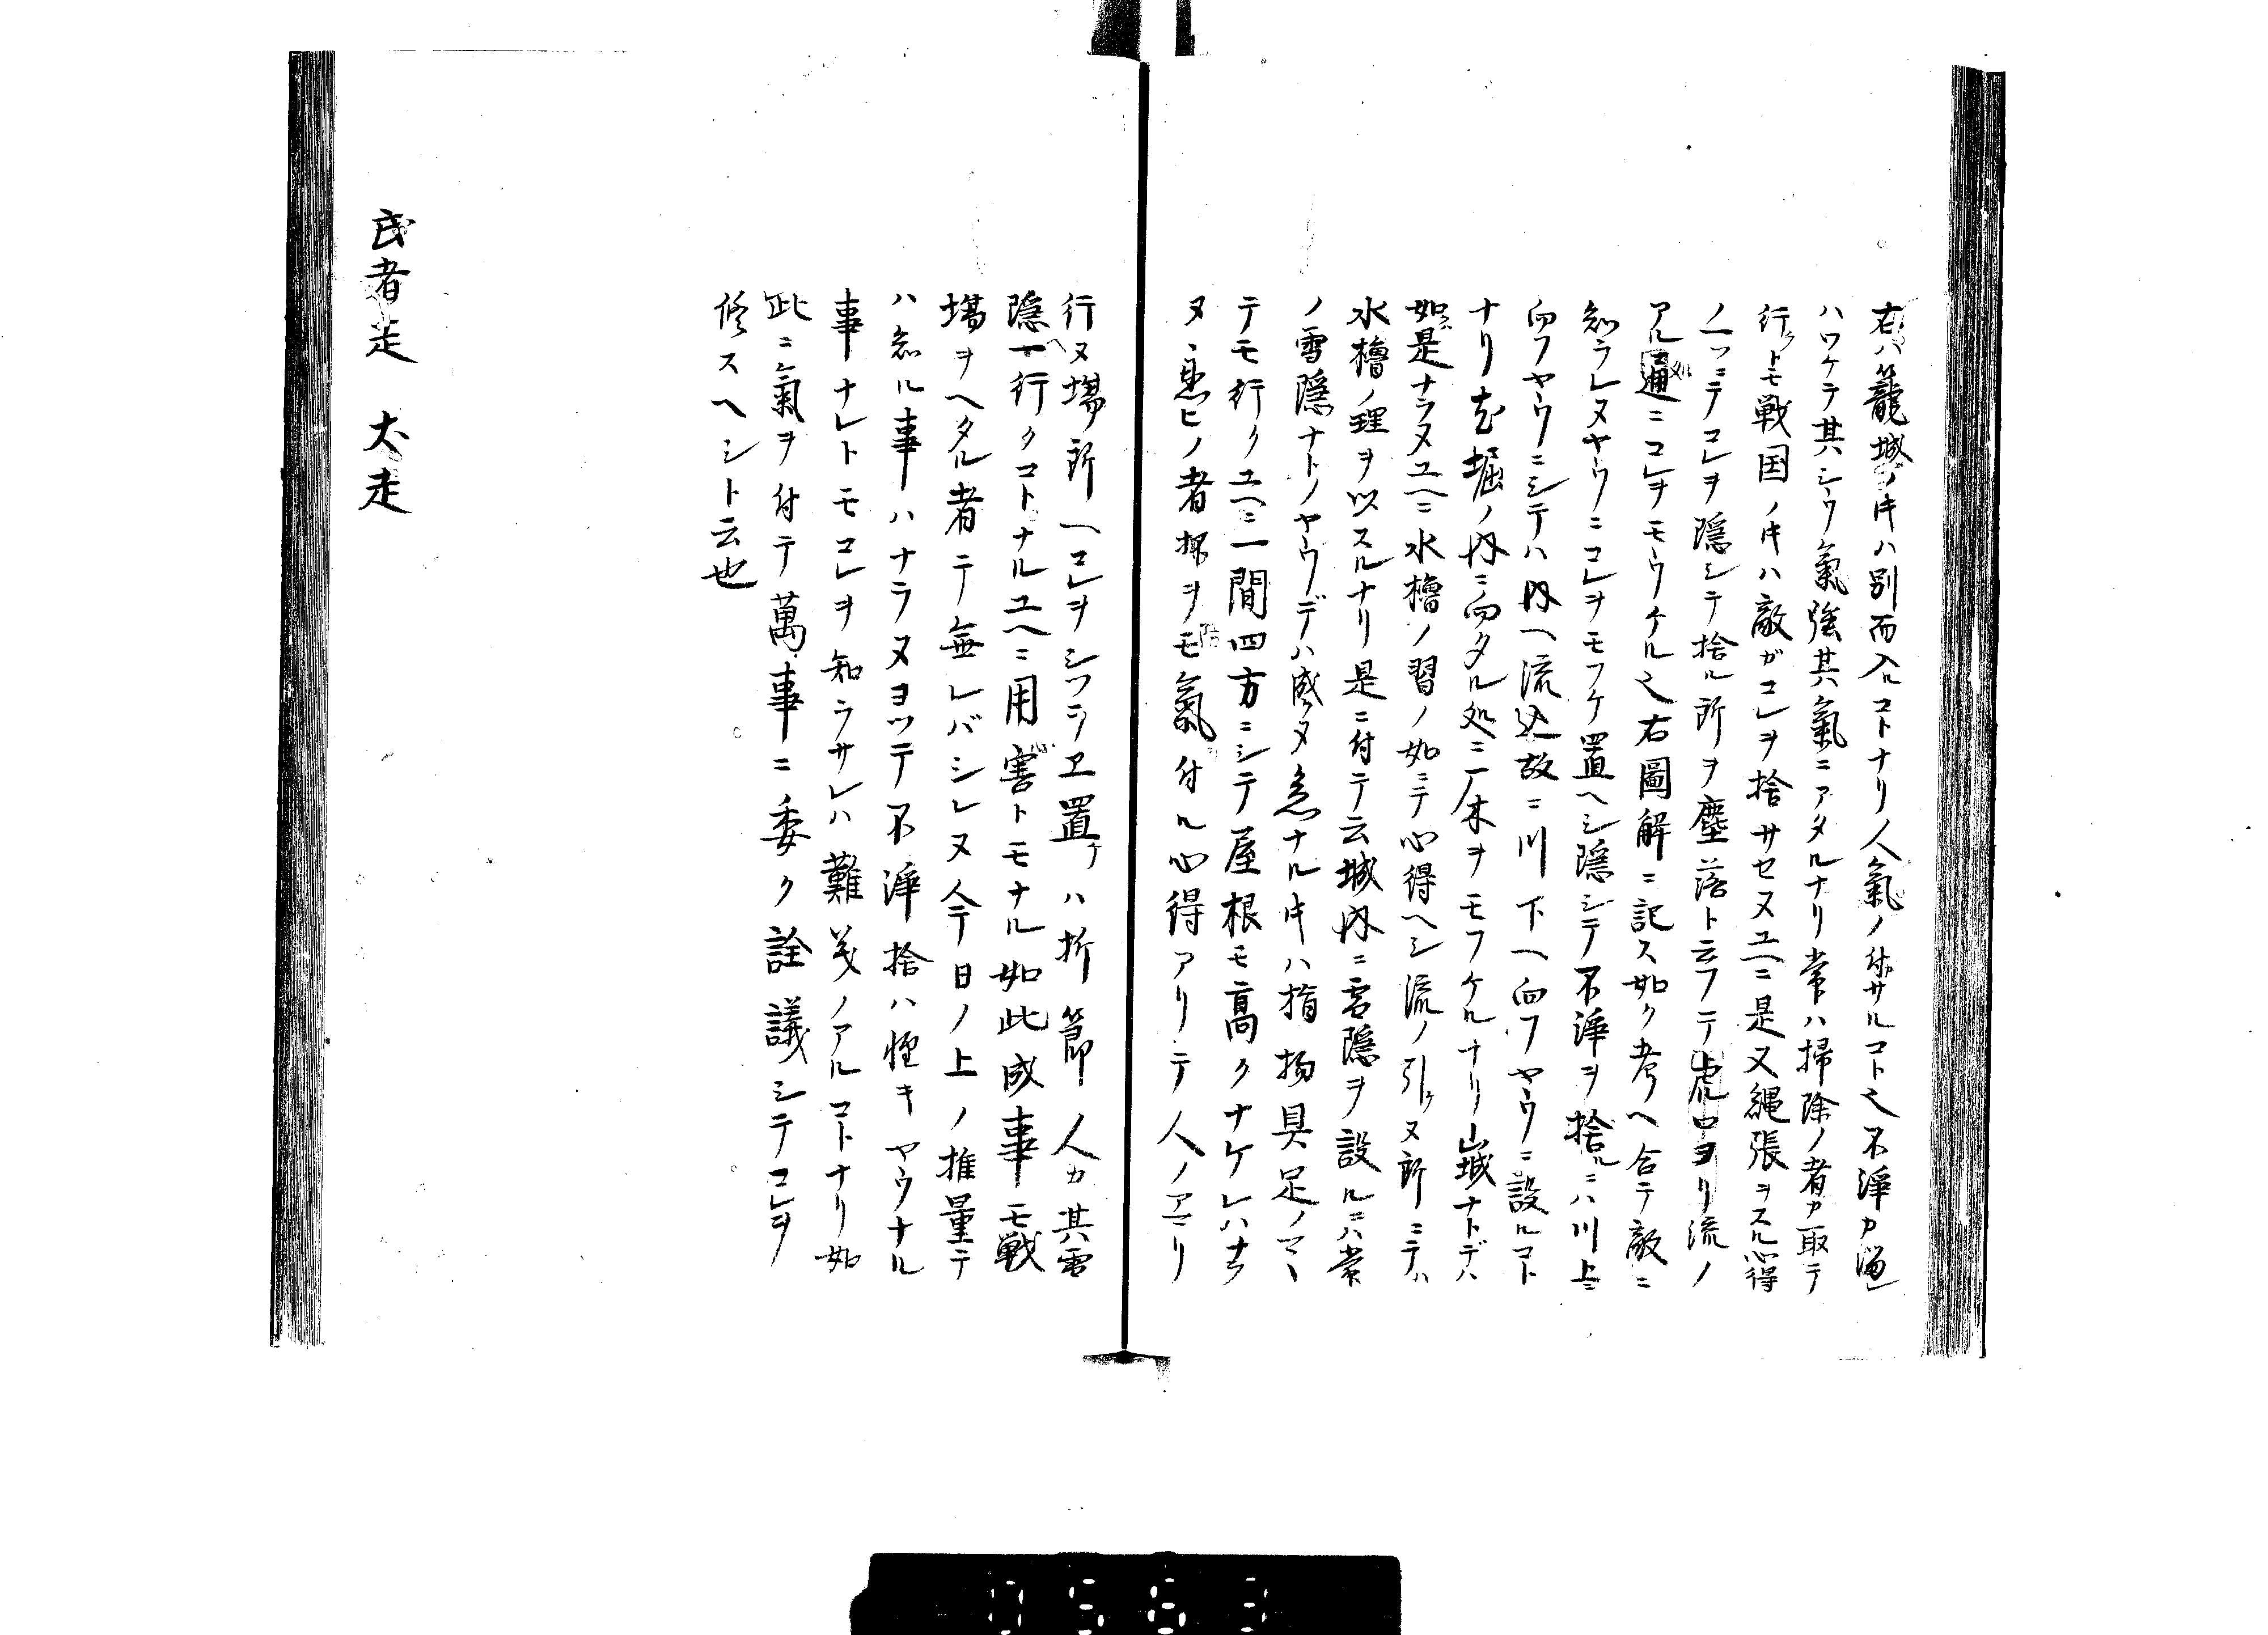 右ハ籠城ノ𪜈ハ別而入ルコトナリ人氣ノ付サルコト也不浄カ溜レ
ハワケテ其シウ氣強其氣ニアタルナリ常ハ掃除ノ者カ取テ
行クトモ戦国ノ𪜈ハ敵ガコレヲ捨サセヌユヘニ是又縄張ヲスル心得
ノ一ツニテコレヲ隠シテ捨ル所ヲ塵落ト云フテ虎口ヨリ流ノ
アル通ニコレヲモウケル也右圖解ニ記ス如ク考ヘ合テ敵ニ
知ラレヌヤウニコレヲモフケ置ヘシ隠シテ不浄ヲ捨ルニハ川上ニ
向フヤウニシテハ内ヘ流込故ニ川下ヘ向フヤウニ設ルコト
ナリ尤堀ノ内ニ向タル処ニ木ヲモフケルナリ山城ナトデハ
如是ナラヌユヘニ水櫓ノ習ノ如ニテ心得ヘシ流ノ引クヌ所ニテハ
水櫓ノ理ヲ以スルナリ是ニ付テ云城内ニ雪隠ヲ設ルニハ常
ノ雪隠ナトノヤウデハ成ヌ急ナル𪜈ハ指物具足ノマヽ
テモ行クユヘニ一間四方ニシテ屋根モ高クナケレハナラ
ヌ忍ヒノ者抔ヲモ氣付ル心得アリテ人ノアマリ
行ヌ場所ヘコレヲシツラヱ置テハ折節人カ其雪
隠ヘ行クコトナルユヘニ用害トモナル如此成事モ戦
場ヲヘタル者テ無レバシレヌ今日ノ上ノ推量テ
ハ知ル事ハナラヌヨツテ不浄捨ハ軽キヤウナル
事ナレトモコレヲ知ラサレハ難義ノアルコトナリ如
此ニ氣ヲ付テ萬事ニ委ク詮議シテコレヲ
修スヘシト云也
武者走　犬走